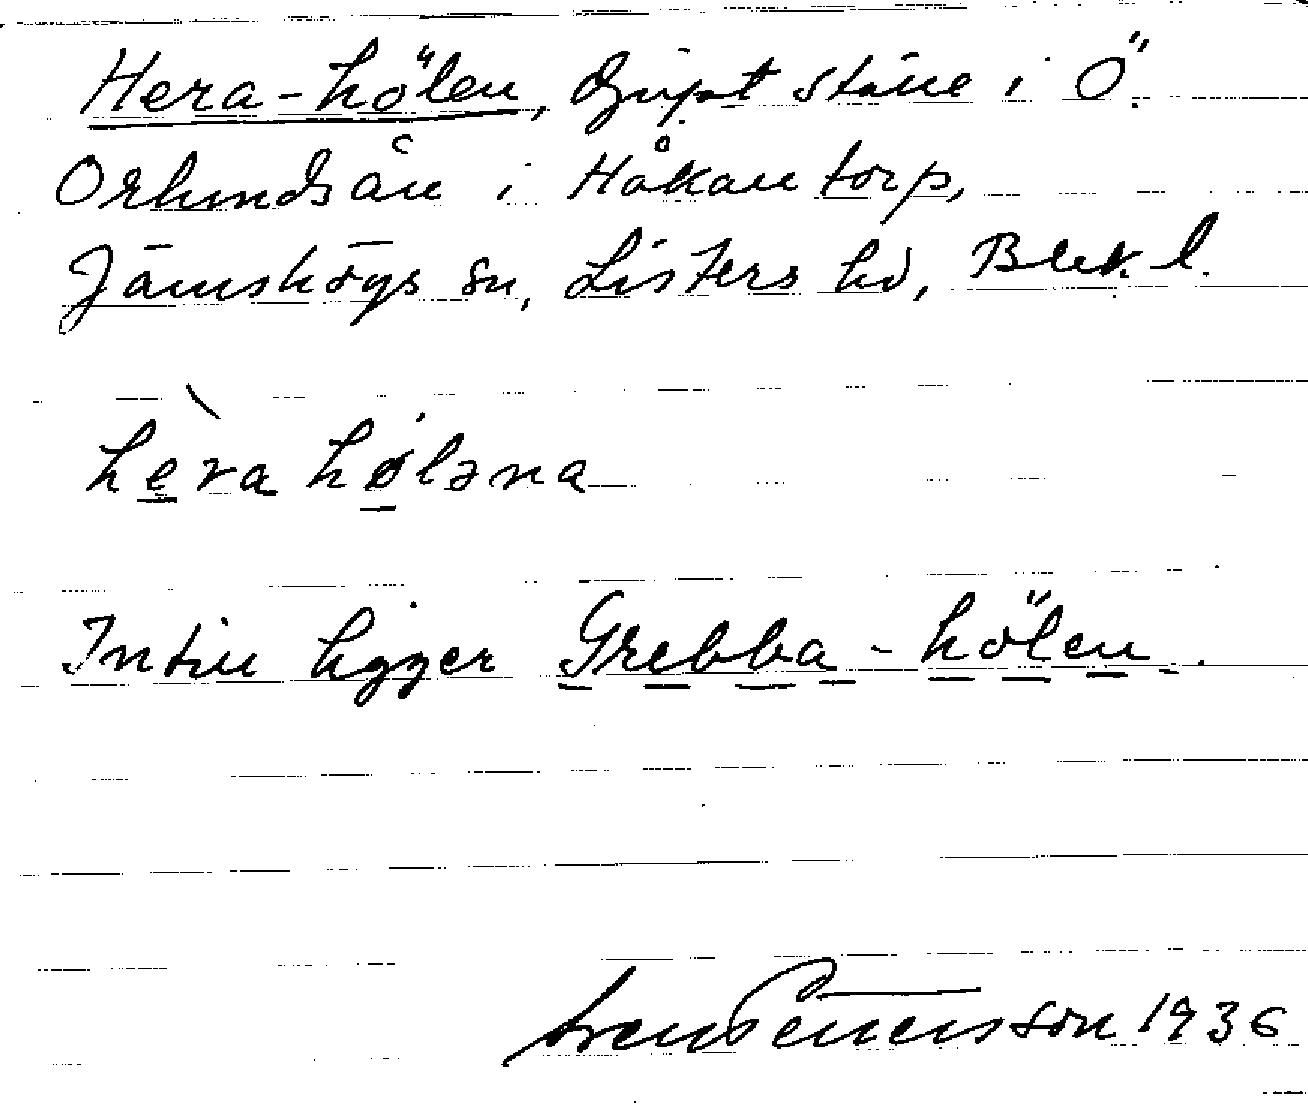 Hera-hölen, djupt ställe i Ö.
Orlundsån i Håkantorp,
Jämshögs sn, Listers hd, Blek. l.
hèra høləna
Intill ligger Grebba-hölen.
Sven Pettersson 1936